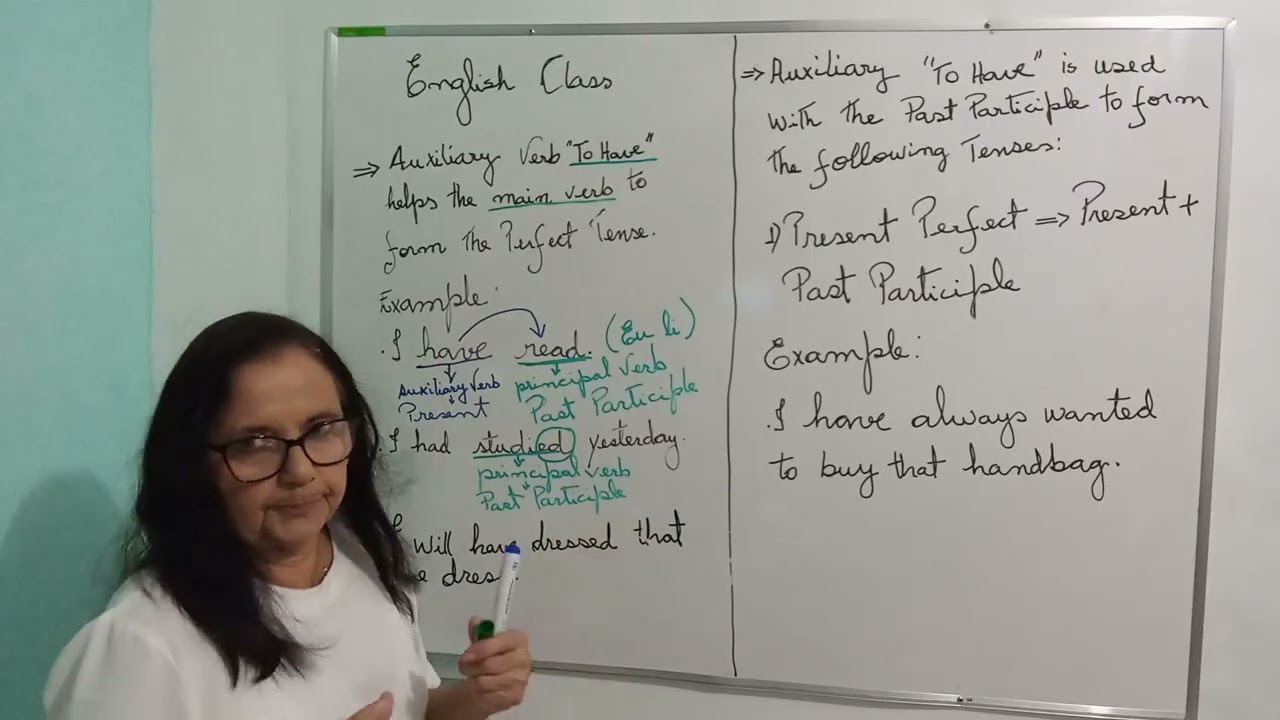 English Class
⇒ Auxiliary Verb "To Have"
helps the main verb to
form the Perfect Tense.
Example:
. I have read. (Eu li)
Auxiliary Verb principal verb
Present Past Participle
. I had studied yesterday.
principal verb
Past Participle
I will have dressed that
dress.
⇒ Auxiliary "To Have" is used
with the Past Participle to form
the following Tenses:
1) Present Perfect ⇒ Present +
Past Participle
Example:
. I have always wanted
to buy that handbag.